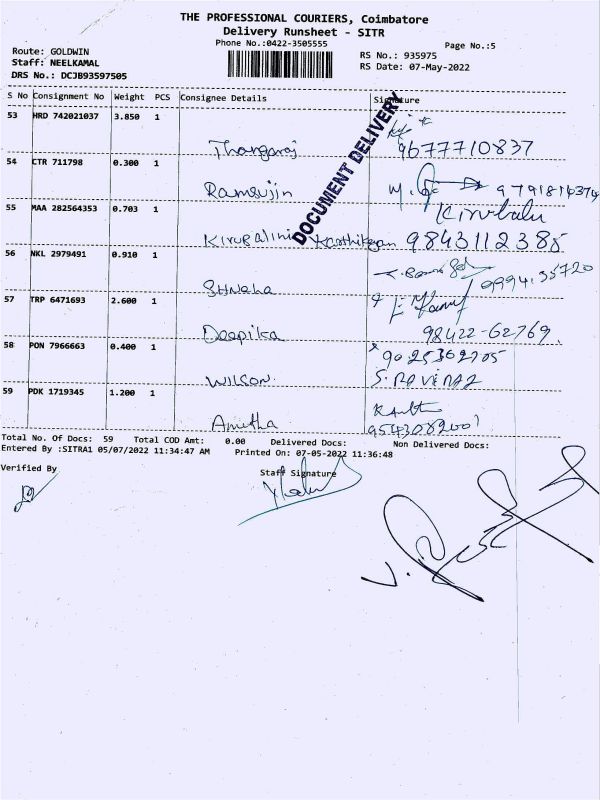 THE PROFESSIONAL COURIERS, Coimbatore
Delivery Runsheet - SITR
Phone No.:0422-3505555
Page No.:5
Route: GOLDWIN
Staff: NEELKAMAL
DRS No.: DCJB93597505
RS No.: 935975
RS Date: 07-May-2022
S No Consignment No Weight PCS Consignee Details Signature
DOCUMENT DELIVERY
53 HRD 742021037 3.850 1
Thangaraj 9677710837
54 CTR 711798 0.300 1
Ramsujin
55 MAA 282564353 0.703 1 Kirubalu
Kirubalini Karthikeyan 9843112385
56 NKL 2979491 0.910 1
57 TRP 6471693 2.600 1
Deepika 98422-62769.
58 PON 7966663 0.400 1
WILSON S. RAVIRAJ
59 PDK 1719345 1.200 1
Amitha
Total No. Of Docs: 59 Total COD Amt: 0.00 Delivered Docs: Non Delivered Docs:
Entered By :SITRA1 05/07/2022 11:34:47 AM Printed On: 07-05-2022 11:36:48
Verified By
Staff Signature